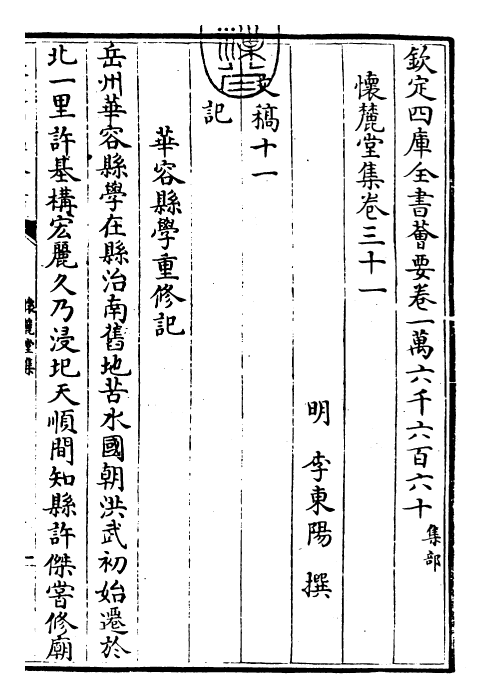 欽定四庫全書薈要卷一萬六千六百六十 集部
懷麓堂集卷三十一
明 李東陽 撰
文稿十一
記
華容縣學重修記
岳州華容縣學在縣治南舊地苦水國朝洪武初始遷於
北一里許基構宏麗久乃浸圮天順間知縣許傑嘗修廟
懷麓堂集